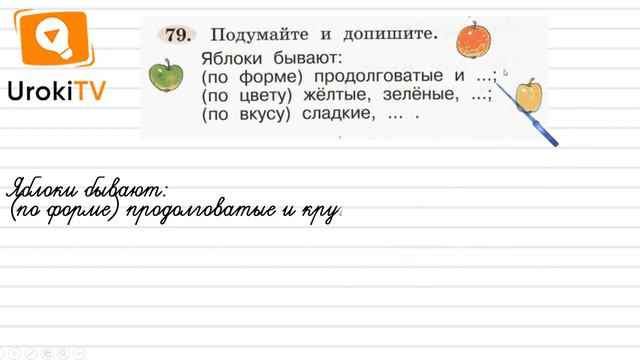 79. Подумайте и допишите.
Яблоки бывают:
(по форме) продолговатые и ...;
(по цвету) жёлтые, зелёные, ...;
(по вкусу) сладкие, ... .
UrokiTV
Яблоки бывают:
(по форме) продолговатые и кру